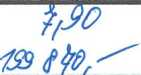 7,90
199 840,—